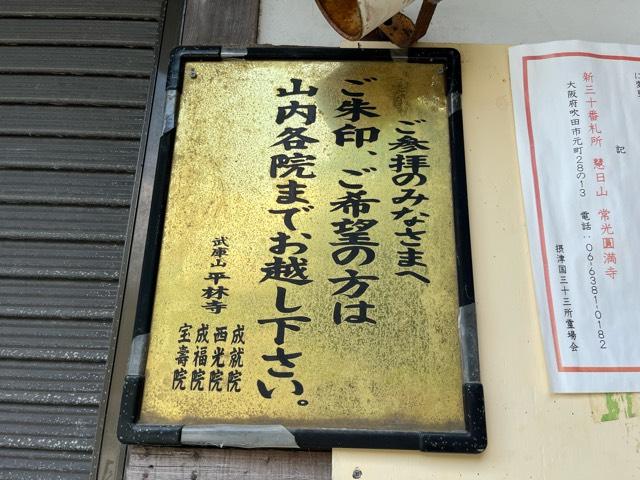 ご参拝のみなさまへ
ご朱印、ご希望の方は
山内各院までお越し下さい。
武庫山 平林寺
成就院
西光院
成福院
宝壽院
記
新三十番札所 慧日山 常光圓満寺
大阪府吹田市元町28の13 電話:06-6381-0182
摂津国三十三所霊場会